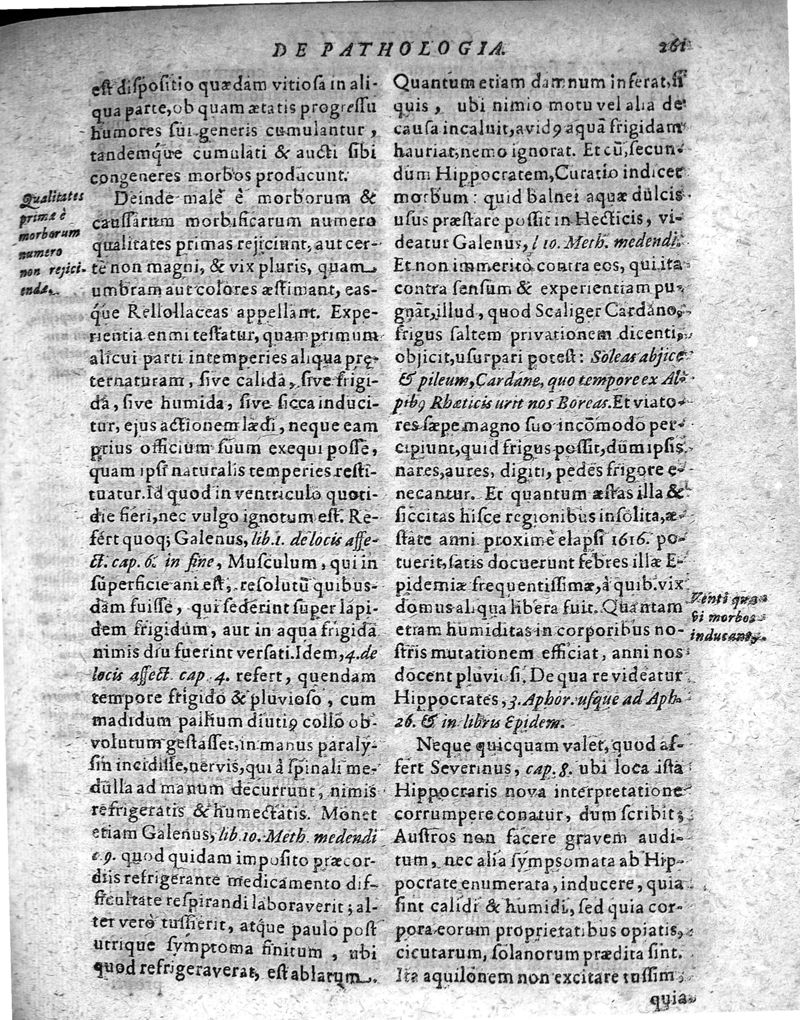 DE PATHOLOGIA.
261
est dispositio quædam vitiosa in ali-
qua parte, ob quam ætatis progressu
humores sui generis cumulantur,
tandemq́ue cumulati & aucti sibi
congeneres morbos producunt.
Deinde malè è morborum &
caussarum morbificarum numero
qualitates primas rejiciunt, aut cer-
tè non magni, & vix pluris, quam
umbram aut colores æstimant, eas-
q́ue Rellollaceas appellant. Expe-
rientia enim testatur, quam primum
alicui parti intemperies aliqua pręter
ternaturam, sive calida, sive frigi-
da, sive humida, sive sicca induci-
tur, ejus actionem lædi, neque eam
prius officium suum exequi posse,
quam ipsi naturalis temperies resti-
tuatur. Id quod in ventriculo quoti-
die fieri, nec vulgo ignotum est. Re-
fert quoq; Galenus, lib. 1. de locis affe-
ct. cap. 6. in fine, Musculum, qui in
superficie ani est, resolutũ quibus-
dam fuisse, qui sederint super lapi-
dem frigidum, aut in aqua frigida
nimis diu fuerint versati. Idem, 4. de
locis affect. cap. 4. refert, quendam
tempore frigido & pluvioso, cum
madidum pallium diutiꝰ collo ob-
volutum gestasset, in manus paraly-
sin incidisse, nervis, qui à spinali me-
dulla ad manum decurrunt, nimis
refrigeratis & humectatis. Monet
etiam Galenus, lib. 10. Meth. medendi
c. 9. quod quidam imposito præcor-
diis refrigerante medicamento dif-
ficultate respirandi laboraverit; al-
ter verò tussierit, atque paulo post
utrique symptoma finitum, ubi
quod refrigeraverat, est ablatum.
Qualitates
primæ è
morborum
numero
non rejici-
endæ.
Quantum etiam damnum inferat, si
quis, ubi nimio motu vel alia de
causa incaluit, avidꝰ aquã frigidam
hauriat, nemo ignorat. Et cũ, secun-
dùm Hippocratem, Curatio indicet
morbum: quid balnei aquæ dulcis
usus præstare possit in Hecticis, vi-
deatur Galenus, l 10. Meth. medendi.
Et non immeritò contra eos, qui ita
contra sensum & experientiam pu-
gnãt, illud, quod Scaliger Cardano,
frigus saltem privationem dicenti,
objicit, usurpari potest: Soleas abjice
& pileum, Cardane, quo tempore ex Al-
pibꝰ Rhæticis urit nos Boreas. Et viato-
res sæpe magno suo incõmodo per-
cipiunt, quid frigus possit, dum ipsis
nares, aures, digiti, pedes frigore e-
necantur. Et quantum æstas illa &
siccitas hisce regionibus insolita, æ-
state anni proximè elapsi 1616. po-
tuerit, satis docuerunt febres illæ E-
pidemiæ frequentissimæ, à quib. vix
domus aliqua libera fuit. Quantam
etiam humiditas in corporibus no-
stris mutationem efficiat, anni nos
docent pluviosi. De qua re videatur
Hippocrates, 3. Aphor. usque ad Aph.
26. & in libris Epidem.
Neque quicquam valet, quod af-
fert Severinus, cap. 8. ubi loca ista
Hippocratis nova interpretatione
corrumpere conatur, dum scribit;
Austros non facere gravem audi-
tum, nec alia sympsomata ab Hip-
pocrate enumerata, inducere, quia
sint calidi & humidi, sed quia cor-
pora eorum proprietatibus opiatis,
cicutarum, solanorum prædita sint.
Ita aquilonem non excitare tussim,
quia
Venti qua-
si morbos
inducant.